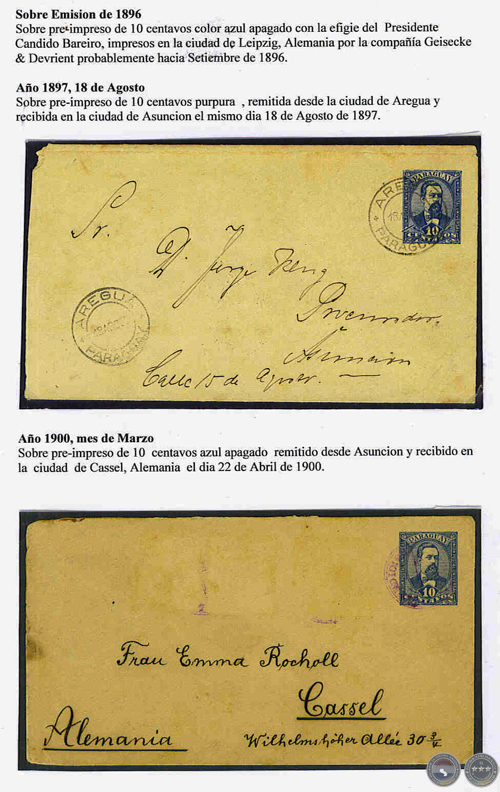 Sobre Emision de 1896
Sobre pre-impreso de 10 centavos color azul apagado con la efigie del Presidente
Candido Bareiro, impresos en la ciudad de Leipzig, Alemania por la compañía Geisecke
& Devrient probablemente hacia Setiembre de 1896.
Año 1897, 18 de Agosto
Sobre pre-impreso de 10 centavos purpura , remitida desde la ciudad de Aregua y
recibida en la ciudad de Asuncion el mismo dia 18 de Agosto de 1897.
PARAGUAY
10
CENTAVOS
AREGUÁ
PARAGUAY
Sr.
D. Jorge
Procurador
Asunción
Calle 15 de Agosto. —
AREGUÁ
PARAGUAY
Año 1900, mes de Marzo
Sobre pre-impreso de 10 centavos azul apagado remitido desde Asuncion y recibido en
la ciudad de Cassel, Alemania el dia 22 de Abril de 1900.
PARAGUAY
10
CENTAVOS
Frau Emma Rocholl
Cassel
Alemania Wilhelmshöher Allée 30